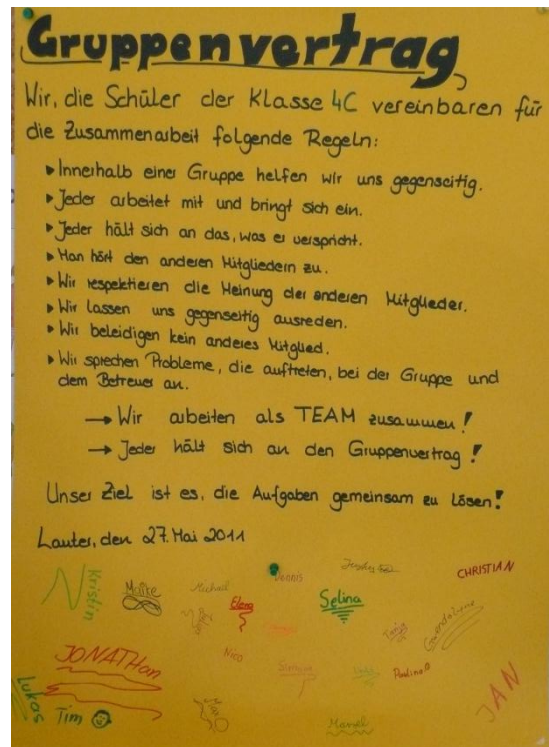 Gruppenvertrag
Wir, die Schüler der Klasse 4C vereinbaren für
die Zusammenarbeit folgende Regeln:
▸ Innerhalb einer Gruppe helfen wir uns gegenseitig.
▸ Jeder arbeitet mit und bringt sich ein.
▸ Jeder hält sich an das, was er verspricht.
▸ Man hört den anderen Mitgliedern zu.
▸ Wir respektieren die Meinung der anderen Mitglieder.
▸ Wir lassen uns gegenseitig ausreden.
▸ Wir beleidigen kein anderes Mitglied.
▸ Wir sprechen Probleme, die auftreten, bei der Gruppe und
dem Betreuer an.
→ Wir arbeiten als TEAM zusammen!
→ Jeder hält sich an den Gruppenvertrag!
Unser Ziel ist es, die Aufgaben gemeinsam zu lösen!
Lauter, den 27. Mai 2011
Kristin
Maike
Michael
Elena
Dennis
Selina
CHRISTIAN
Tanja
JONATHan
Nico
Lukas
Tim
Marcel
JAN